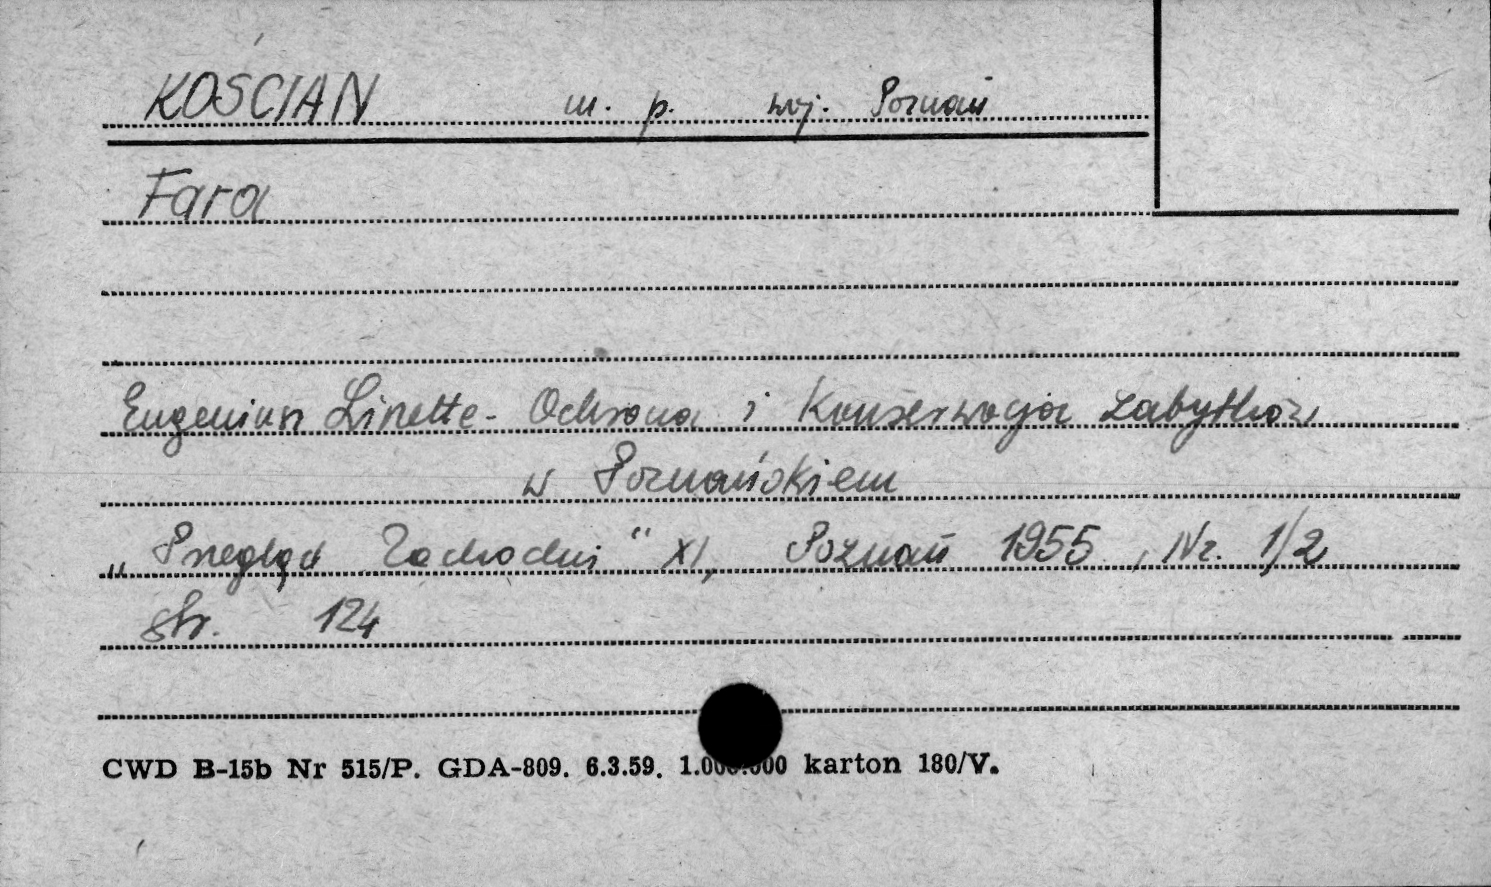 KOŚCIAN m. p. woj. Poznań
Fara
Eugeniusz Linette - Ochrona i Konserwacja zabytków
w Poznańskiem
„Przegląd Zachodni" XI, Poznań 1955, Nr. 1/2
str. 124
CWD B-15b Nr 515/P. GDA-809. 6.3.59. 1.000.000 karton 180/V.